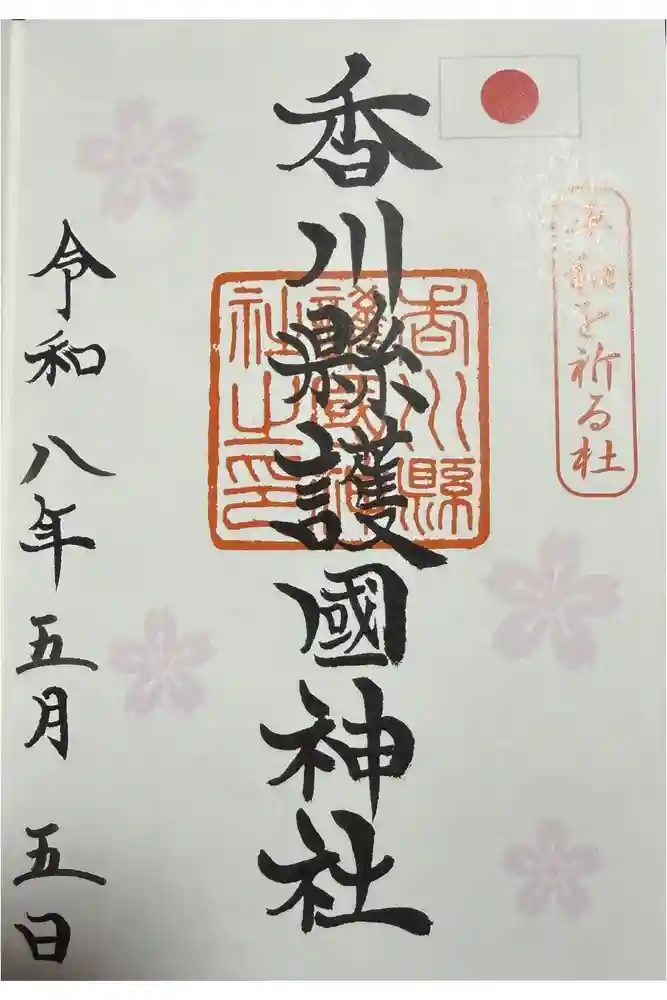 平和を祈る杜
香川縣護國神社
香川縣護國神社之印
令和八年五月五日